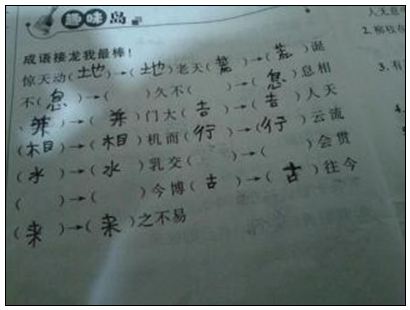 趣味岛
成语接龙我最棒！
惊天动(地)→(地)老天(荒)→(荒)诞
不(息)→( )久不( )→(息)息相
( )→( )门大(吉)→(吉)人天
(相)→(相)机而(行)→(行)云流
(水)→(水)乳交( )→( )会贯
( )→( )今博(古)→(古)往今
(来)→(来)之不易
人无意
2.柳枝在
3.有
4.